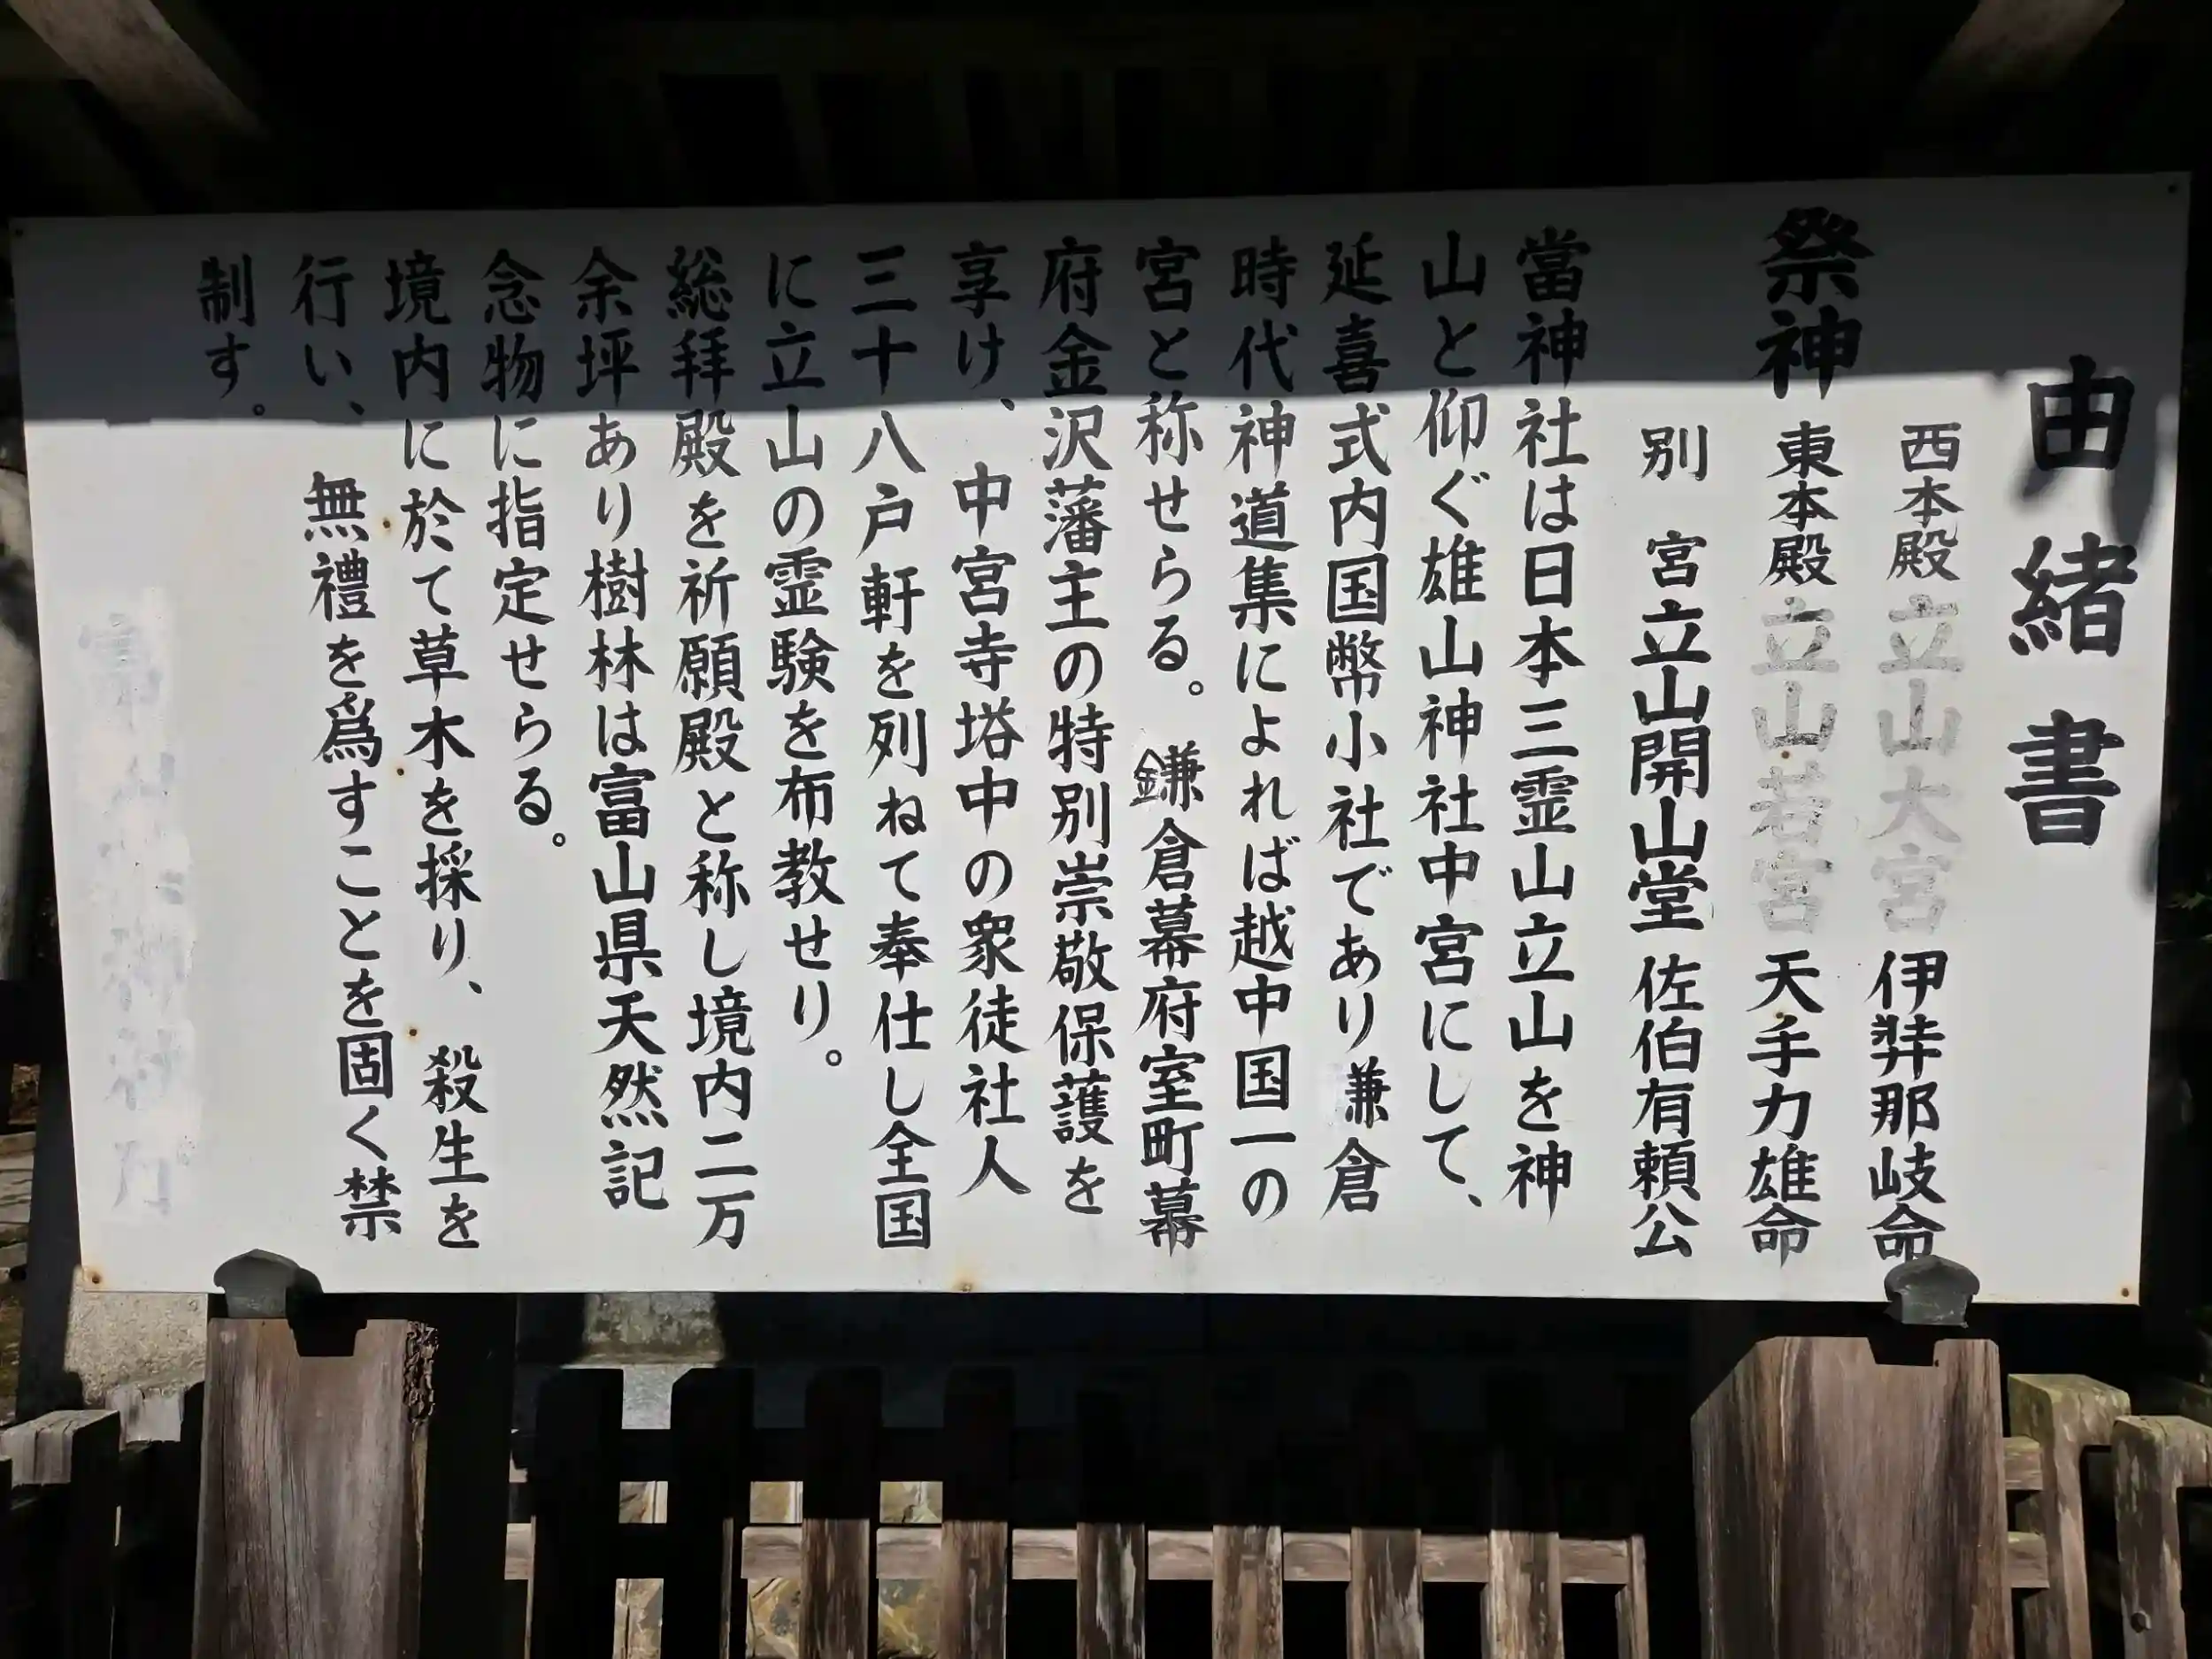 由緒書
祭神
西本殿 立山大宮 伊弉那岐命
東本殿 立山若宮 天手力雄命
別宮 立山開山堂 佐伯有頼公
當神社は日本三霊山立山を神
山と仰ぐ雄山神社中宮にして、
延喜式内国幣小社であり兼倉
時代神道集によれば越中国一の
宮と称せらる。鎌倉幕府室町幕
府金沢藩主の特別崇敬保護を
享け、中宮寺塔中の衆徒社人
三十八戸軒を列ねて奉仕し全国
に立山の霊験を布教せり。
総拝殿を祈願殿と称し境内二万
余坪あり樹林は富山県天然記
念物に指定せらる。
境内に於て草木を採り、殺生を
行い、無禮を爲すことを固く禁
制す。